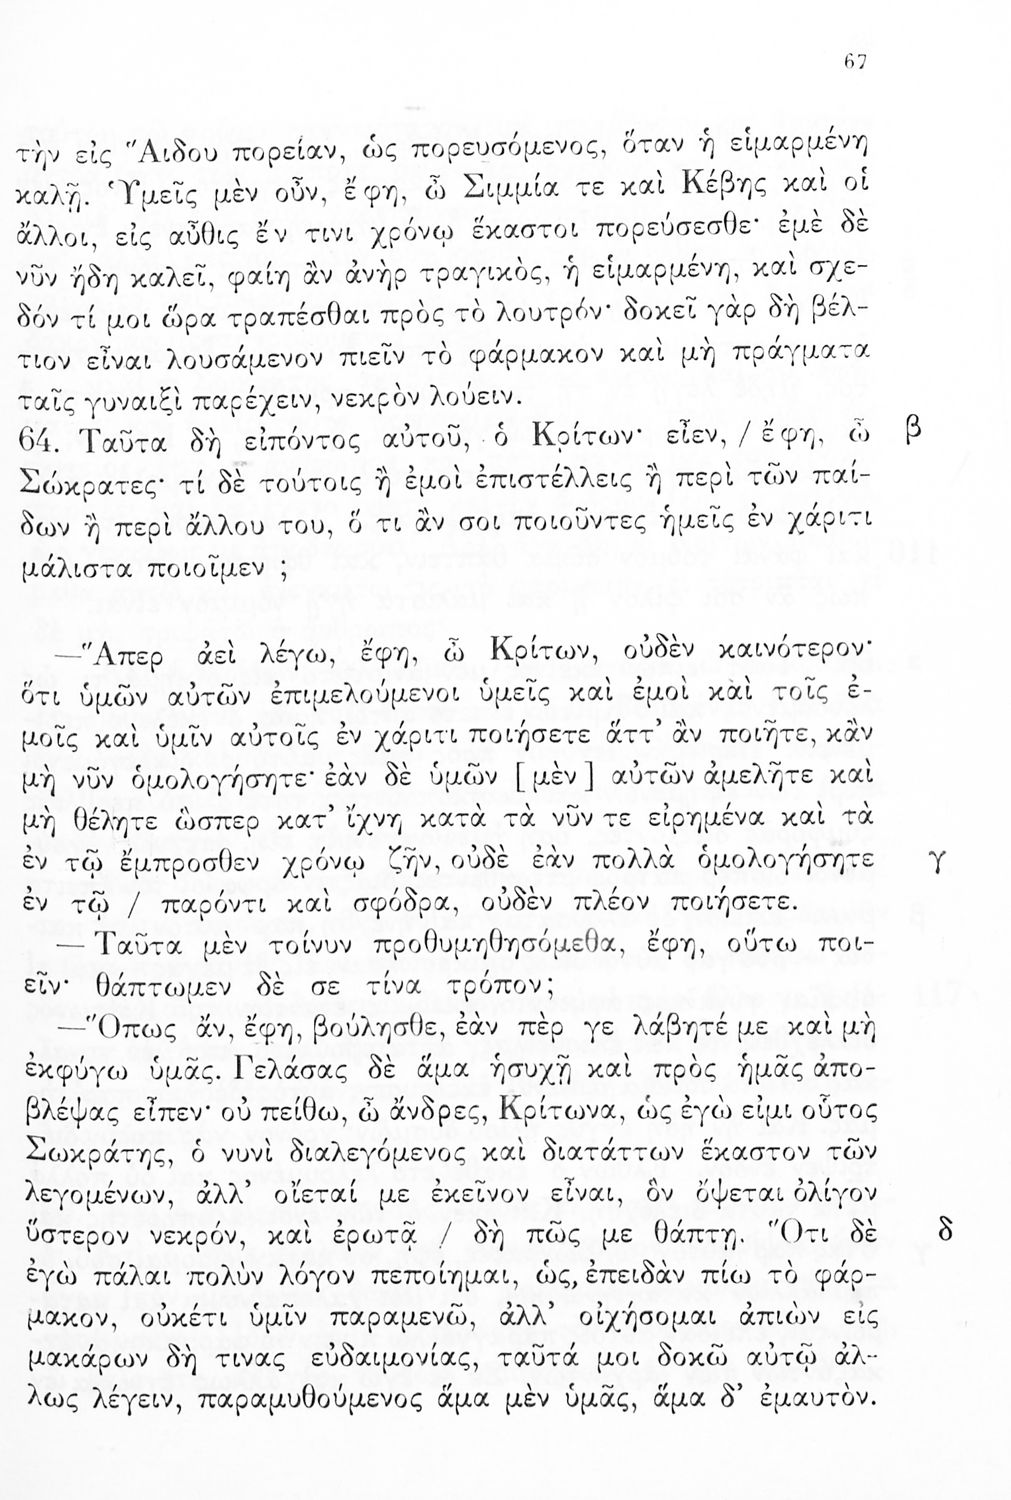 67
τὴν εἰς Ἅιδου πορείαν, ὡς πορευσόμενος, ὅταν ἡ εἱμαρμένη
καλῇ. Ὑμεῖς μὲν οὖν, ἔφη, ὦ Σιμμία τε καὶ Κέβης καὶ οἱ
ἄλλοι, εἰς αὖθις ἔν τινι χρόνῳ ἕκαστοι πορεύσεσθε· ἐμὲ δὲ
νῦν ἤδη καλεῖ, φαίη ἂν ἀνὴρ τραγικὸς, ἡ εἱμαρμένη, καὶ σχε-
δόν τί μοι ὥρα τραπέσθαι πρὸς τὸ λουτρόν· δοκεῖ γὰρ δὴ βέλ-
τιον εἶναι λουσάμενον πιεῖν τὸ φάρμακον καὶ μὴ πράγματα
ταῖς γυναιξὶ παρέχειν, νεκρὸν λούειν.
64. Ταῦτα δὴ εἰπόντος αὐτοῦ, ὁ Κρίτων· εἶεν, / ἔφη, ὦ β
Σώκρατες· τί δὲ τούτοις ἢ ἐμοὶ ἐπιστέλλεις ἢ περὶ τῶν παί-
δων ἢ περὶ ἄλλου του, ὅ τι ἄν σοι ποιοῦντες ἡμεῖς ἐν χάριτι
μάλιστα ποιοῖμεν ;
—Ἅπερ ἀεὶ λέγω, ἔφη, ὦ Κρίτων, οὐδὲν καινότερον·
ὅτι ὑμῶν αὐτῶν ἐπιμελούμενοι ὑμεῖς καὶ ἐμοὶ καὶ τοῖς ἐ-
μοῖς καὶ ὑμῖν αὐτοῖς ἐν χάριτι ποιήσετε ἅττ’ ἂν ποιῆτε, κἂν
μὴ νῦν ὁμολογήσητε· ἐὰν δὲ ὑμῶν [μὲν] αὐτῶν ἀμελῆτε καὶ
μὴ θέλητε ὥσπερ κατ’ ἴχνη κατὰ τὰ νῦν τε εἰρημένα καὶ τὰ
ἐν τῷ ἔμπροσθεν χρόνῳ ζῆν, οὐδὲ ἐὰν πολλὰ ὁμολογήσητε γ
ἐν τῷ / παρόντι καὶ σφόδρα, οὐδὲν πλέον ποιήσετε.
— Ταῦτα μὲν τοίνυν προθυμηθησόμεθα, ἔφη, οὕτω ποι-
εῖν· θάπτωμεν δὲ σε τίνα τρόπον;
—Ὅπως ἄν, ἔφη, βούλησθε, ἐὰν πὲρ γε λάβητέ με καὶ μὴ
ἐκφύγω ὑμᾶς. Γελάσας δὲ ἅμα ἡσυχῇ καὶ πρὸς ἡμᾶς ἀπο-
βλέψας εἶπεν· οὐ πείθω, ὦ ἄνδρες, Κρίτωνα, ὡς ἐγώ εἰμι οὗτος
Σωκράτης, ὁ νυνὶ διαλεγόμενος καὶ διατάττων ἕκαστον τῶν
λεγομένων, ἀλλ’ οἴεταί με ἐκεῖνον εἶναι, ὃν ὄψεται ὀλίγον
ὕστερον νεκρόν, καὶ ἐρωτᾷ / δὴ πῶς με θάπτῃ. Ὅτι δὲ δ
ἐγὼ πάλαι πολὺν λόγον πεποίημαι, ὡς, ἐπειδὰν πίω τὸ φάρ-
μακον, οὐκέτι ὑμῖν παραμενῶ, ἀλλ’ οἰχήσομαι ἀπιὼν εἰς
μακάρων δή τινας εὐδαιμονίας, ταῦτά μοι δοκῶ αὐτῷ ἀλ-
λως λέγειν, παραμυθούμενος ἅμα μὲν ὑμᾶς, ἅμα δ’ ἐμαυτὸν.